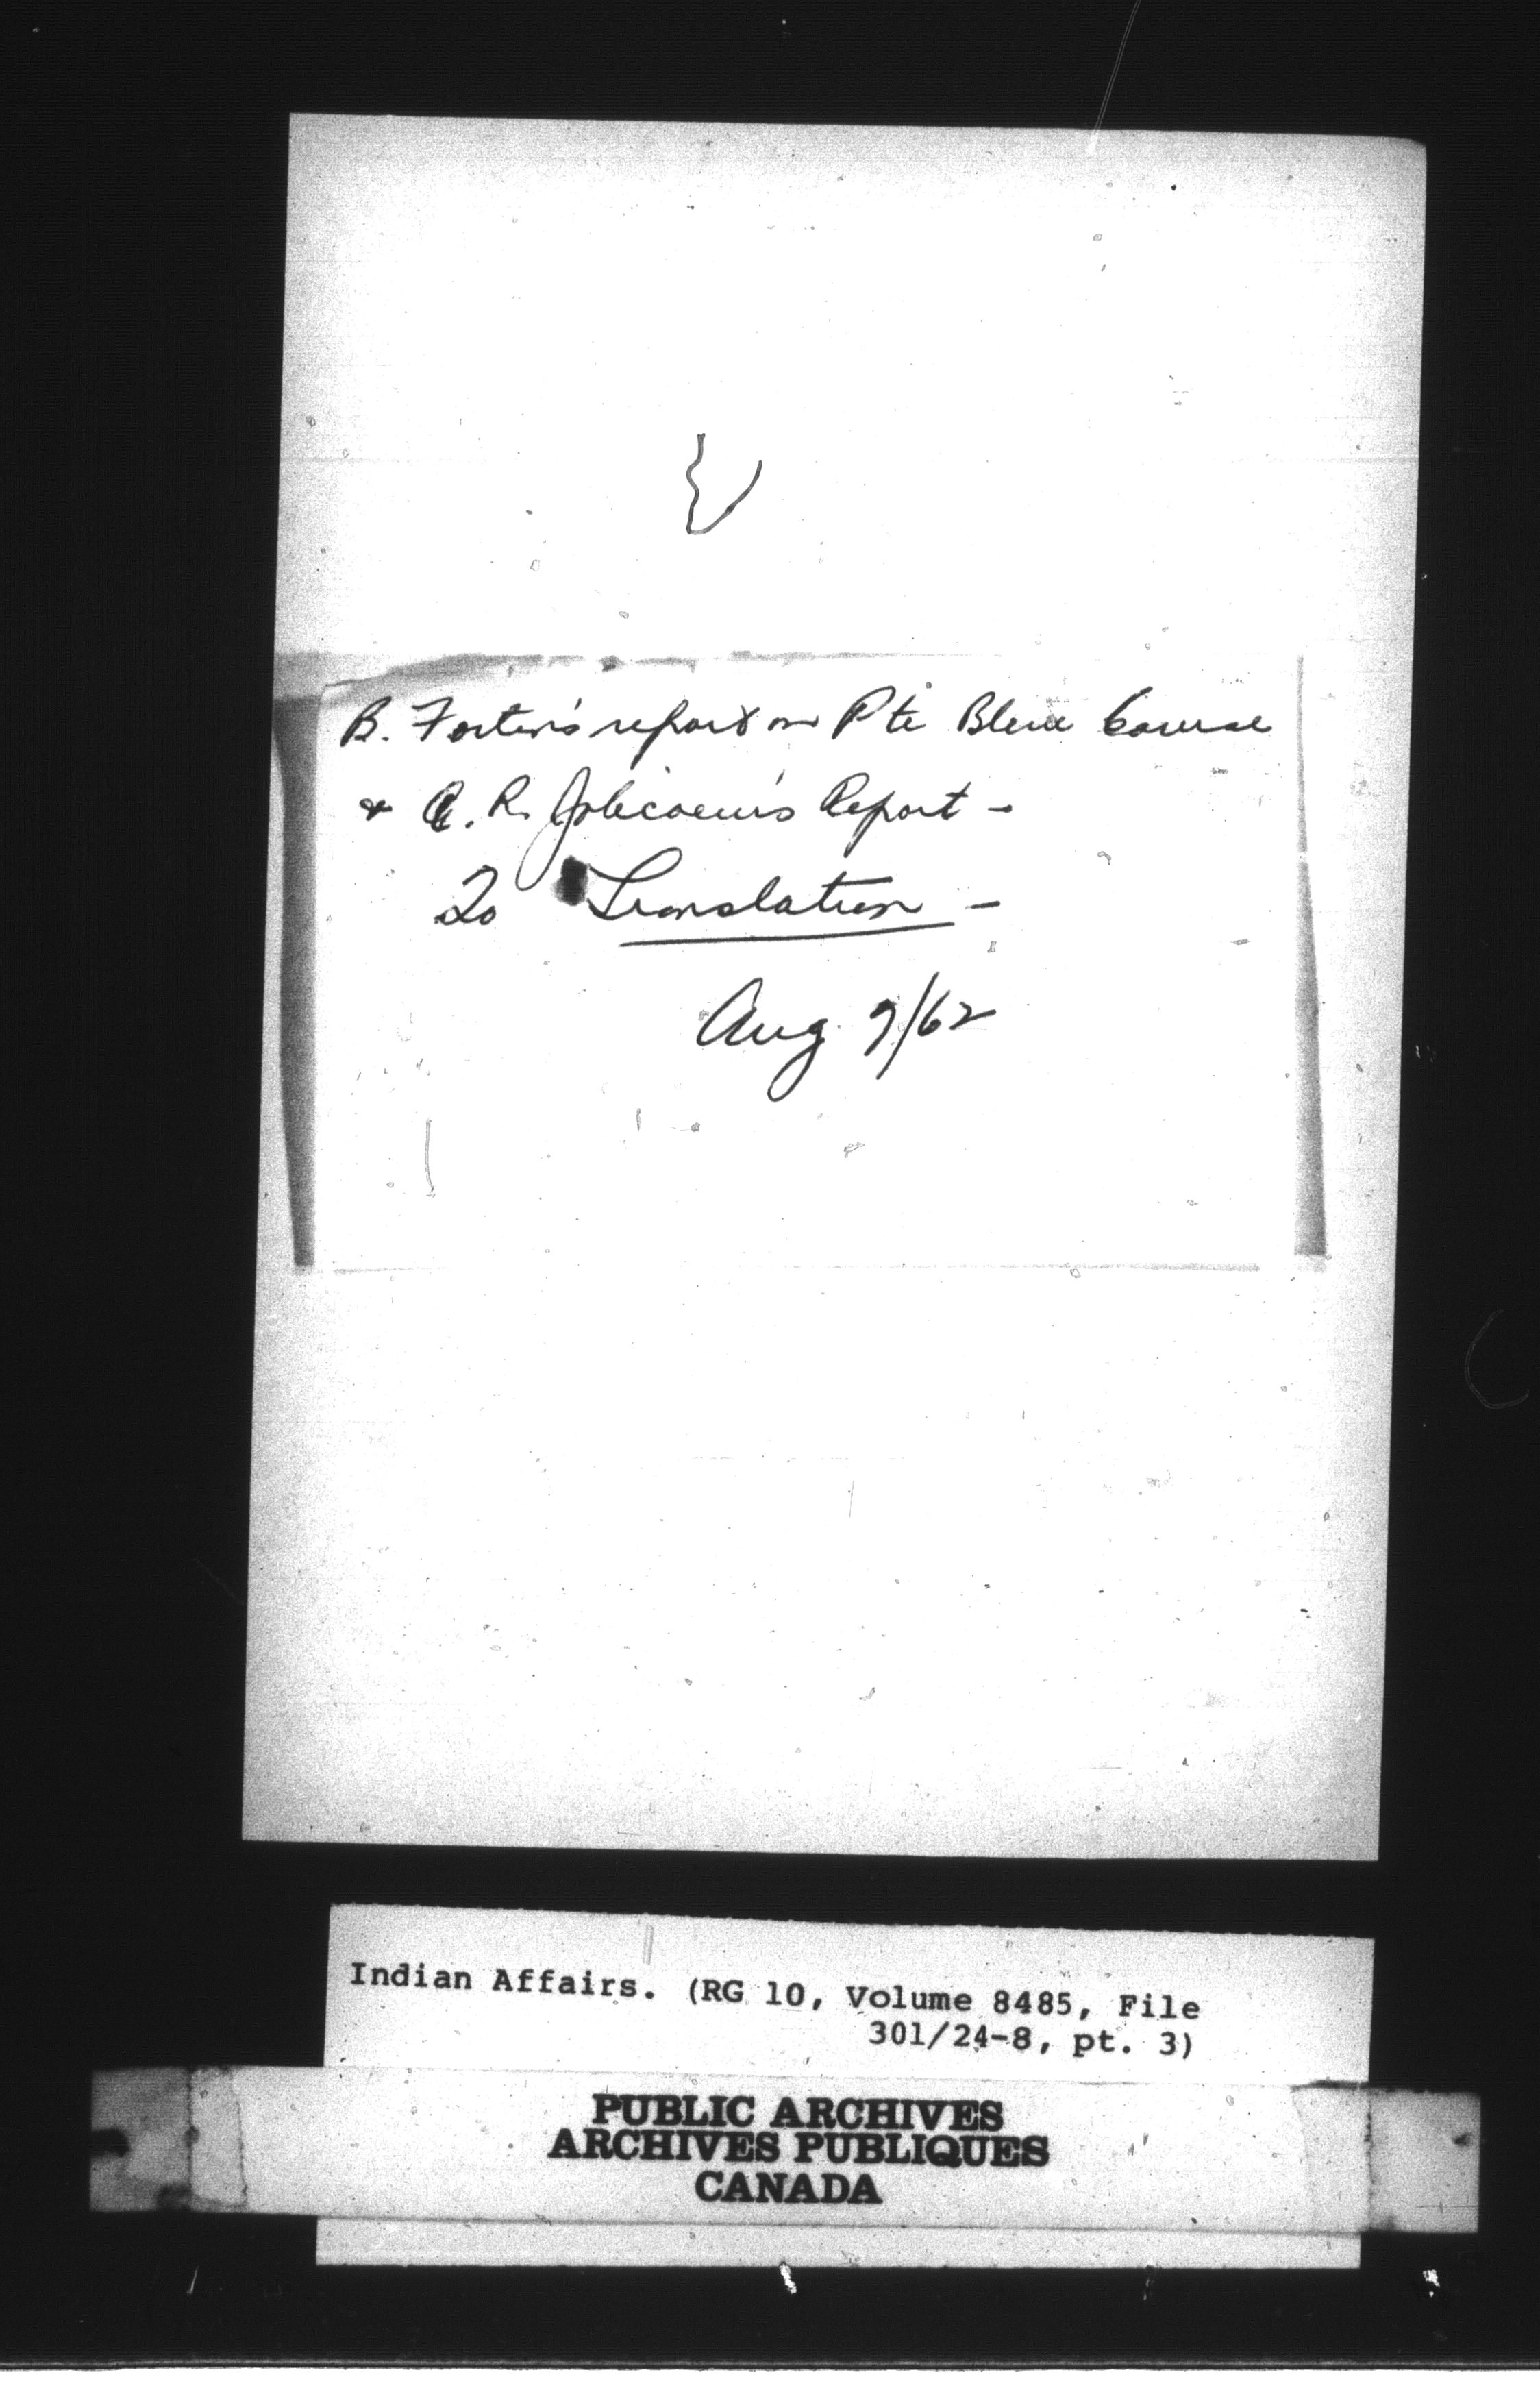 B. Fortin's report on Pte Bleue Course
& A. R. Jolicoeur's Report -
To Translation -
Aug 9/62
Indian Affairs. (RG 10, Volume 8485, File
301/24-8, pt. 3)
PUBLIC ARCHIVES
ARCHIVES PUBLIQUES
CANADA